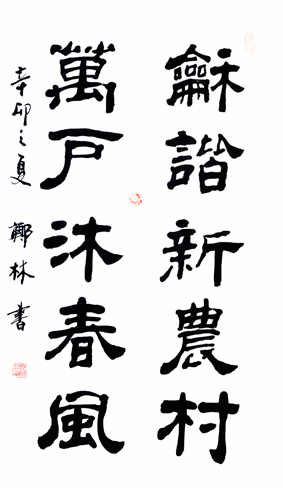 龢諧新農村
萬戶沐春風
辛卯之夏 鄭林書